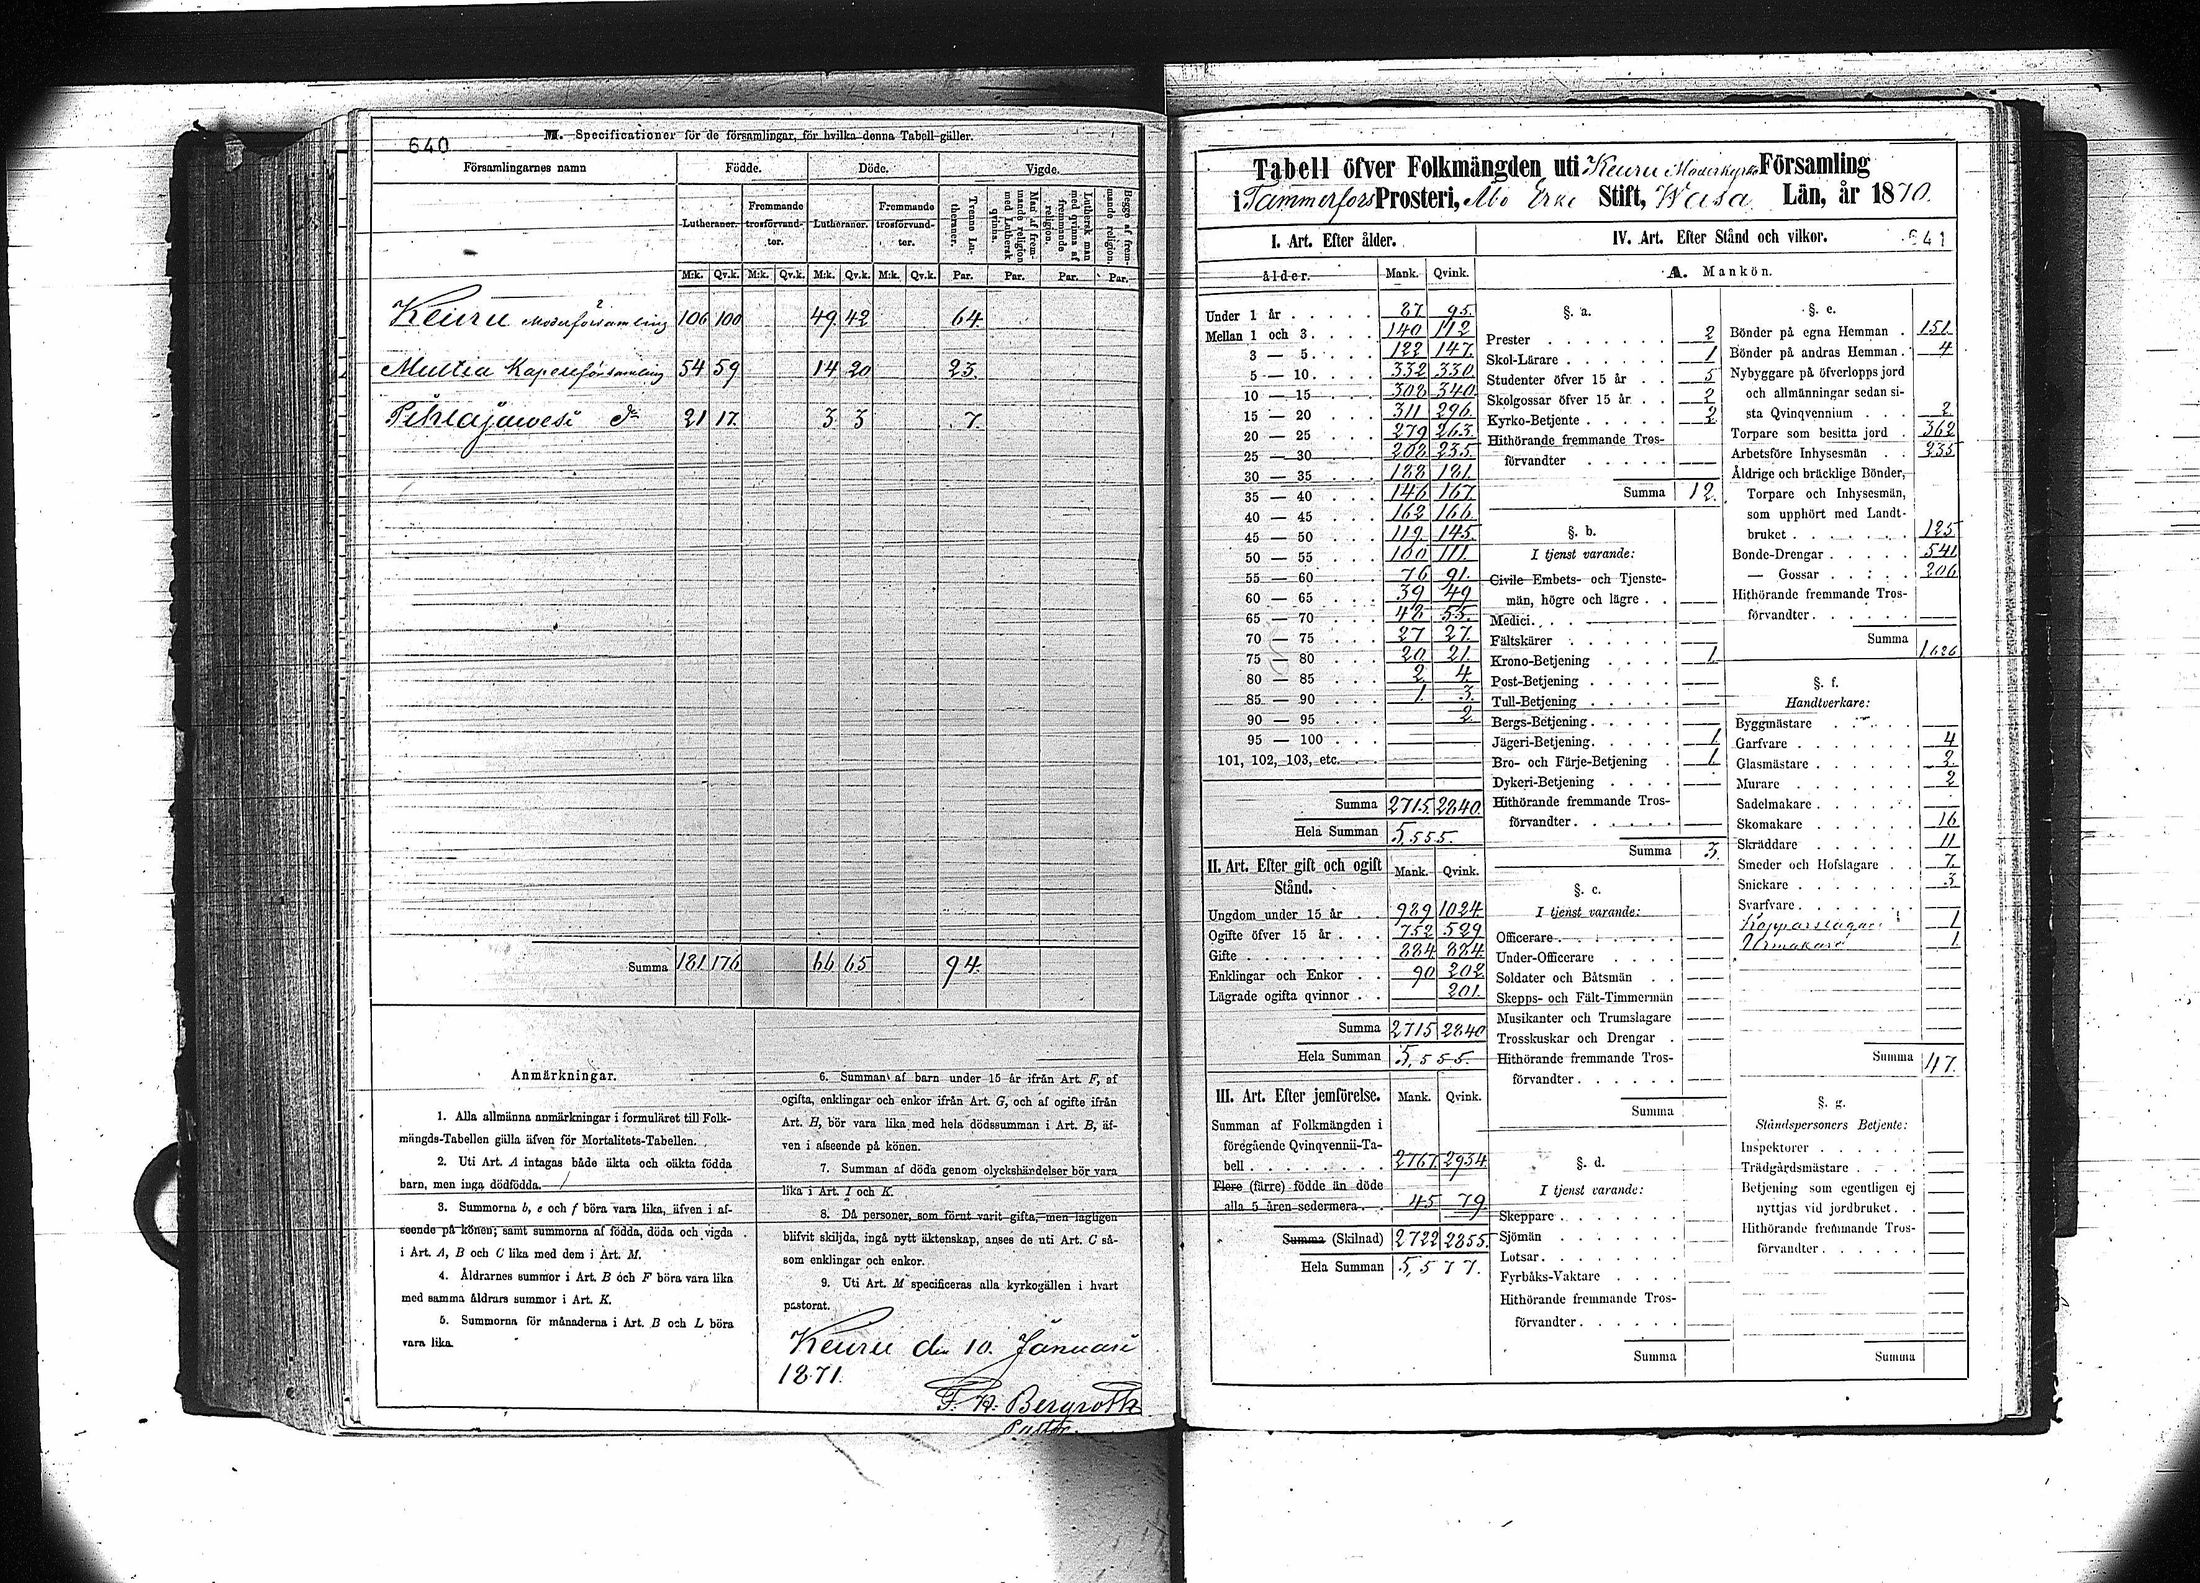 640
M. Specificationer för de församlingar, för hvilka denna Tabell gäller.
Församlingarnes namn
Födde. Döde. Vigde.
Lutheraner. Fremmande trosförvandter. Lutheraner. Fremmande trosförvandter. Trenne Lutheraner. Man af fremmande religion med Luthersk qvinna. Luthersk man med qvinna af fremmande religion. Begge af fremmande religion.
M:k. Qv.k. M:k. Qv.k. M:k. Qv.k. M:k. Qv.k. Par. Par. Par. Par.
Keuru Moderförsamling 106 100 49 42 64
Multia Kapellförsamling 54 59 14 20 23
Pihlajawesi do 21 17 3 3 7
Summa 181 176 66 65 94
Anmärkningar.
1. Alla allmänna anmärkningar i formuläret till Folk-
mängds-Tabellen gälla äfven för Mortalitets-Tabellen.
2. Uti Art. A intagas både äkta och oäkta födda
barn, men inga dödfödda.
3. Summorna b, e och f böra vara lika, äfven i af-
seende på könen; samt summorna af födda, döda och vigda
i Art. A, B och C lika med dem i Art. M.
4. Åldrarnes summor i Art. B och F böra vara lika
med samma åldrars summor i Art. K.
5. Summorna för månaderna i Art. B och L böra
vara lika.
6. Summan af barn under 15 år ifrån Art. F, af
ogifta, enklingar och enkor ifrån Art. G, och af ogifte ifrån
Art. H, bör vara lika med hela dödssumman i Art. B, äf-
ven i afseende på könen.
7. Summan af döda genom olyckshändelser bör vara
lika i Art. I och K.
8. Då personer, som förut varit gifta, men lagligen
blifvit skiljda, ingå nytt äktenskap, anses de uti Art. C så-
som enklingar och enkor.
9. Uti Art. M specificeras alla kyrkogällen i hvart
pastorat.
Keuru den 10. Januari
1871.
F. W. Bergroth
Pastor.
Tabell öfver Folkmängden uti Keuru Moderkyrko Församling
i Tammerfors Prosteri, Åbo Erke Stift, Wasa Län, år 1870.
641
I. Art. Efter ålder.
ålder. Mank. Qvink.
Under 1 år 87 95
Mellan 1 och 3 140 112
3 — 5 122 147
5 — 10 332 330
10 — 15 308 340
15 — 20 311 296
20 — 25 279 263
25 — 30 208 235
30 — 35 188 181
35 — 40 146 167
40 — 45 162 166
45 — 50 119 145
50 — 55 100 111
55 — 60 76 91
60 — 65 39 49
65 — 70 48 55
70 — 75 27 27
75 — 80 20 21
80 — 85 2 4
85 — 90 1 3
90 — 95 2
95 — 100
101, 102, 103, etc.
Summa 2715 2840
Hela Summan 5,555.
II. Art. Efter gift och ogift Stånd. Mank. Qvink.
Ungdom under 15 år 989 1024
Ogifte öfver 15 år 752 529
Gifte 884 884
Enklingar och Enkor 90 202
Lägrade ogifta qvinnor 201
Summa 2715 2840
Hela Summan 5,555.
III. Art. Efter jemförelse. Mank. Qvink.
Summan af Folkmängden i
föregående Qvinqvennii-Ta-
bell 2767 2934
Flere (färre) födde än döde
alla 5 åren sedermera 45 79
Summa (Skilnad) 2722 2855
Hela Summan 5,577.
IV. Art. Efter Stånd och vilkor.
A. Mankön.
§. a.
Prester 2
Skol-Lärare 1
Studenter öfver 15 år 5
Skolgossar öfver 15 år 2
Kyrko-Betjente 2
Hithörande fremmande Tros-
förvandter
Summa 12
§. b.
I tjenst varande:
Civile Embets- och Tjenste-
män, högre och lägre
Medici
Fältskärer
Krono-Betjening 1
Post-Betjening
Tull-Betjening
Bergs-Betjening
Jägeri-Betjening 1
Bro- och Färje-Betjening 1
Dykeri-Betjening
Hithörande fremmande Tros-
förvandter
Summa 3
§. c.
I tjenst varande:
Officerare
Under-Officerare
Soldater och Båtsmän
Skepps- och Fält-Timmermän
Musikanter och Trumslagare
Trosskuskar och Drengar
Hithörande fremmande Tros-
förvandter
Summa
§. d.
I tjenst varande:
Skeppare
Sjömän
Lotsar
Fyrbåks-Vaktare
Hithörande fremmande Tros-
förvandter
Summa
§. e.
Bönder på egna Hemman 151
Bönder på andras Hemman 4
Nybyggare på öfverlopps jord
och allmänningar sedan si-
sta Qvinqvennium 2
Torpare som besitta jord 362
Arbetsföre Inhysesmän 235
Äldrige och bräcklige Bönder,
Torpare och Inhysesmän,
som upphört med Landt-
bruket 125
Bonde-Drengar 541
— Gossar 206
Hithörande fremmande Tros-
förvandter
Summa 1626
§. f.
Handtverkare:
Byggmästare
Garfvare 4
Glasmästare 2
Murare 2
Sadelmakare
Skomakare 16
Skräddare 11
Smeder och Hofslagare 7
Snickare 3
Svarfvare
Kopparslagare 1
Urmakare 1
Summa 47
§. g.
Ståndspersoners Betjente:
Inspektorer
Trädgårdsmästare
Betjening som egentligen ej
nyttjas vid jordbruket
Hithörande fremmande Tros-
förvandter
Summa